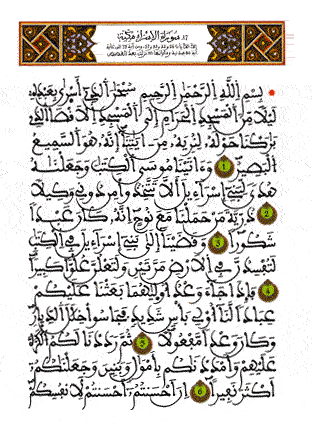 17 سورة الإسراء مكية
بسم الله الرحمن الرحيم سبحن الذي أسرى بعبده
ليلا من المسجد الحرام إلى المسجد الاقصا الذي
بركنا حوله لنريه من ايتنا إنه هو السميع
البصير 1 وءاتينا موسى الكتب وجعلنه
هدى لبني إسراءيل ألا تتخذوا من دوني وكيلا
2 ذرية من حملنا مع نوح انه كان عبدا
شكورا 3 وقضينا إلى بني إسراءيل في الكتب
لتفسدن في الارض مرتين ولتعلن علوا كبيرا
4 فإذا جاء وعد أوليهما بعثنا عليكم
عبادا لنا أولي بأس شديد فجاسوا خلل الديار
وكان وعدا مفعولا 5 ثم رددنا لكم الكرة
عليهم وأمددنكم بأموال وبنين وجعلنكم
أكثر نفيرا 6 إن احسنتم أحسنتم لأنفسكم